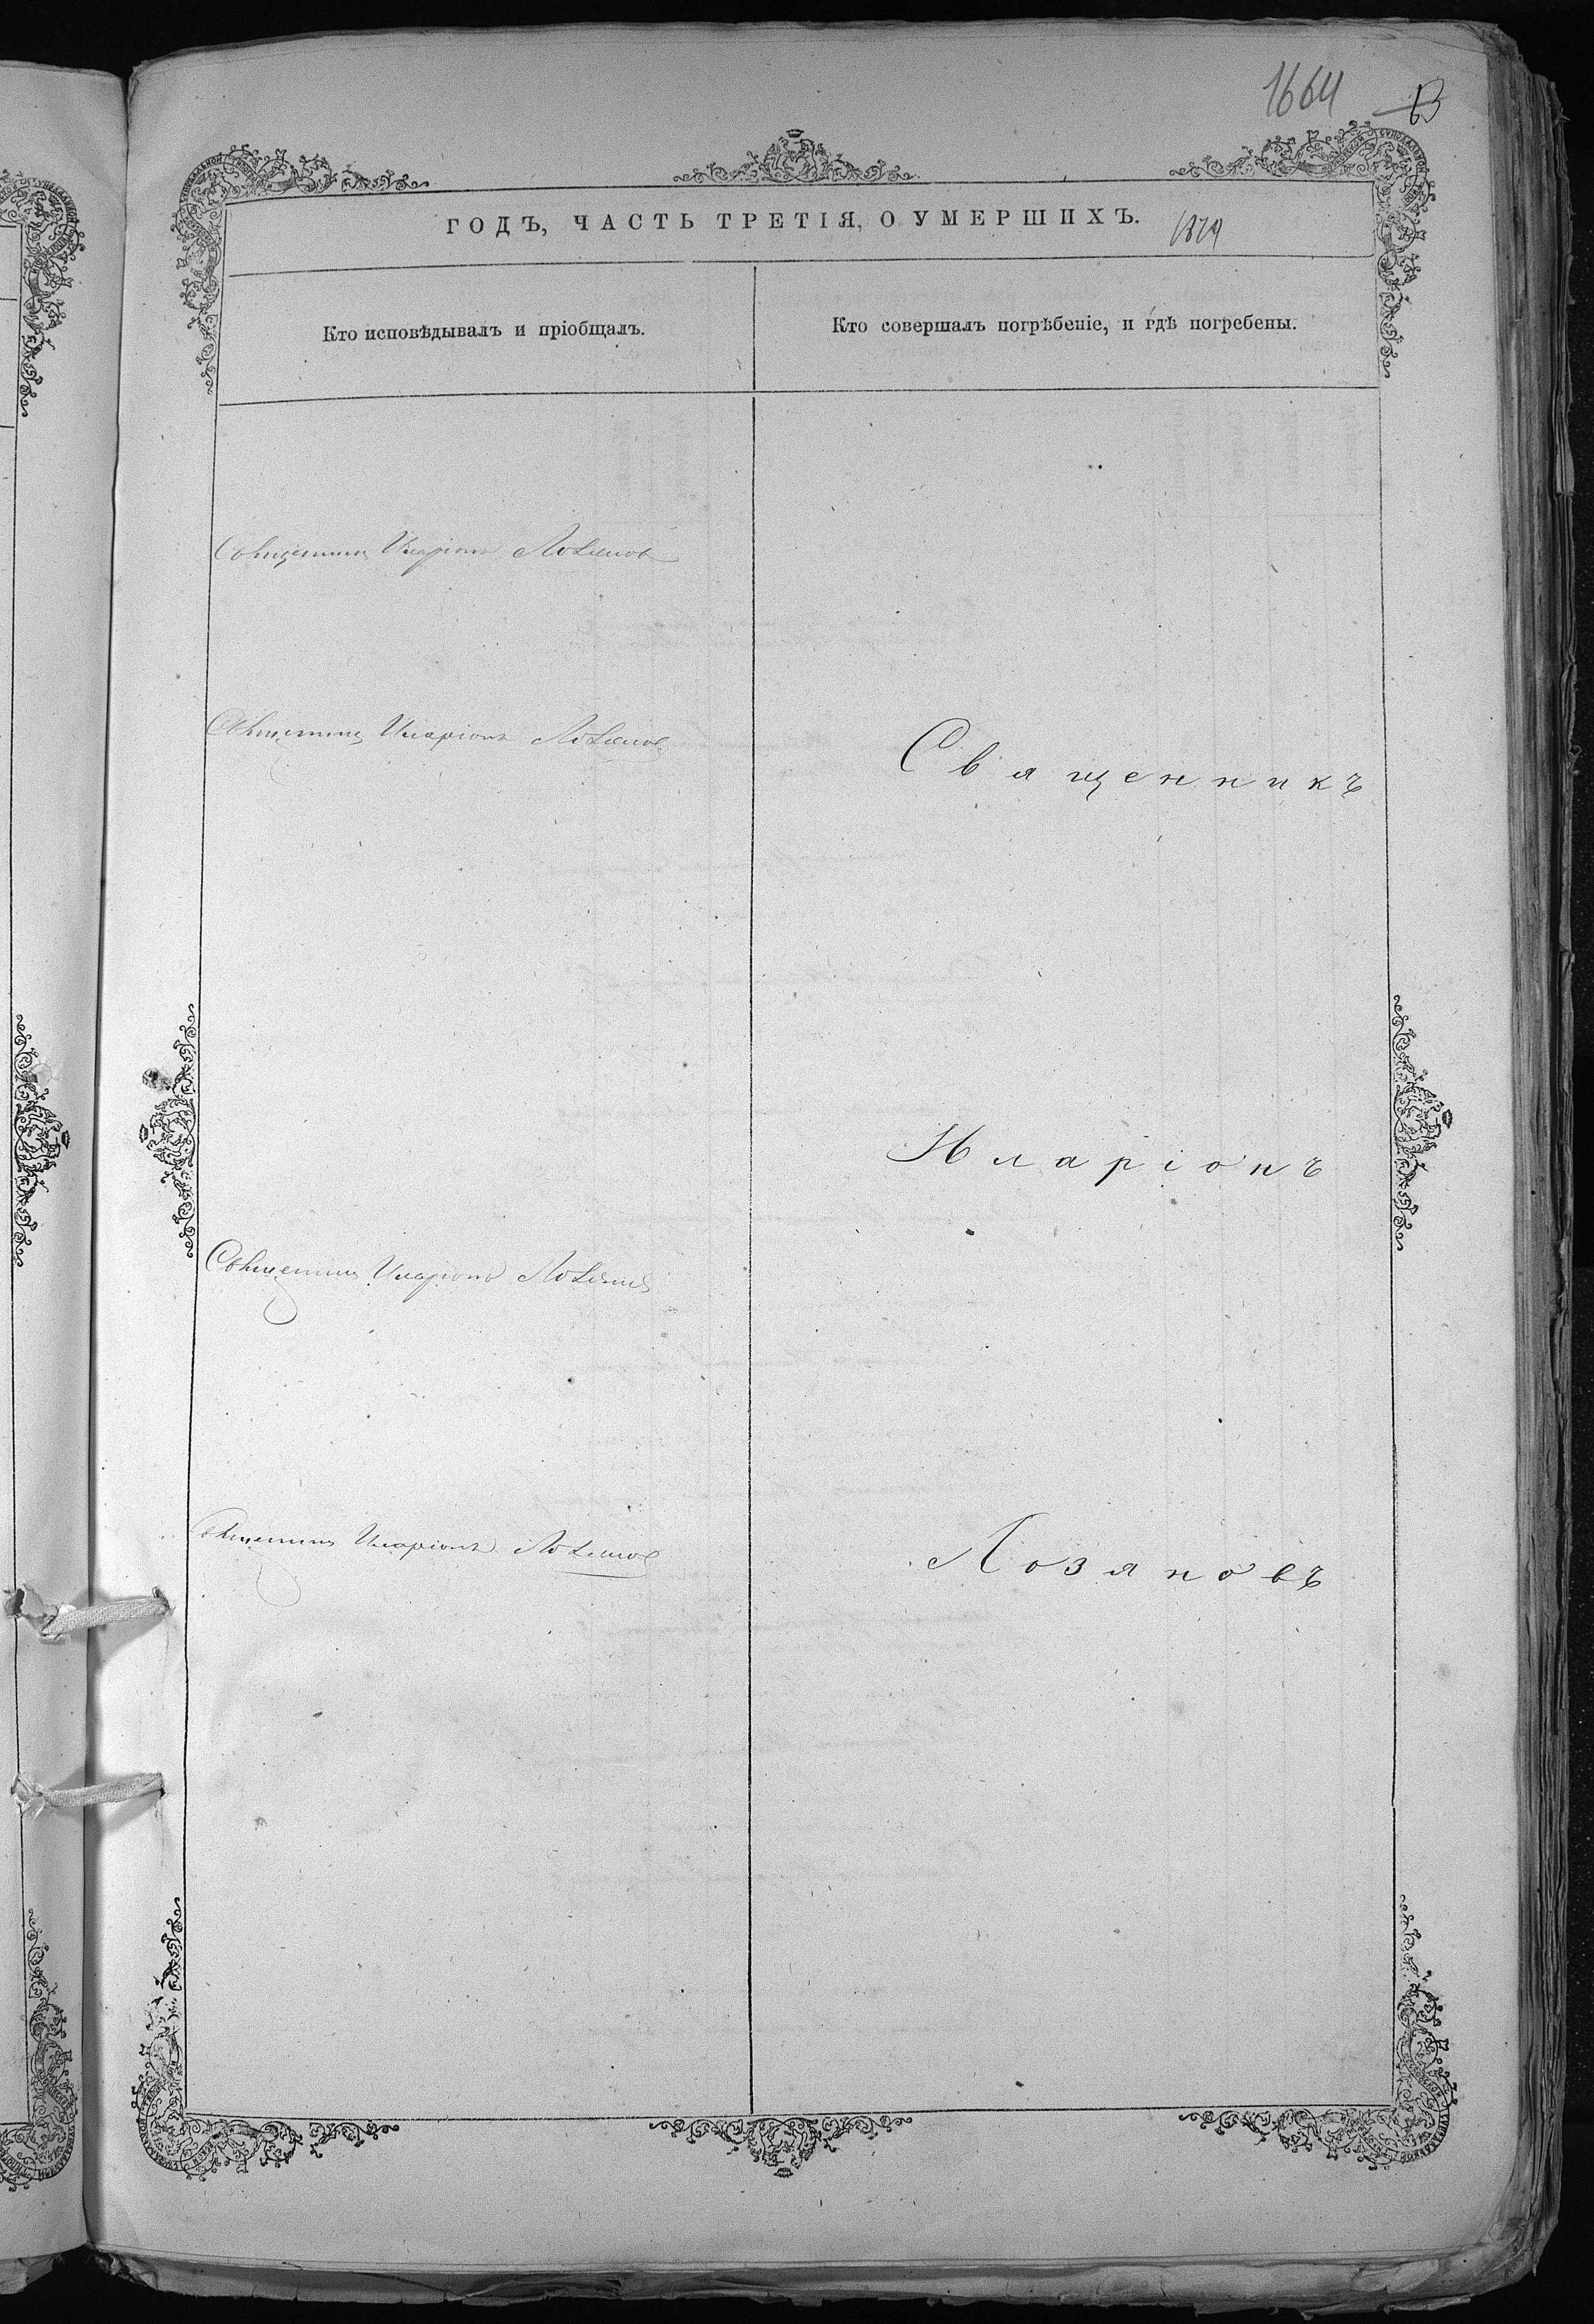 1664 13
ГОДЪ, ЧАСТЬ ТРЕТІЯ, О УМЕРШИХЪ. 1879
Кто исповѣдывалъ и пріобщалъ.
Кто совершалъ погрѣбеніе, и гдѣ погребены.
Священникъ Иларіонъ Лозяновъ
Священникъ Иларіонъ Лозяновъ
Священникъ Иларіонъ Лозяновъ
Священникъ Иларіонъ Лозяновъ
Священникъ
Иларіонъ
Лозяновъ